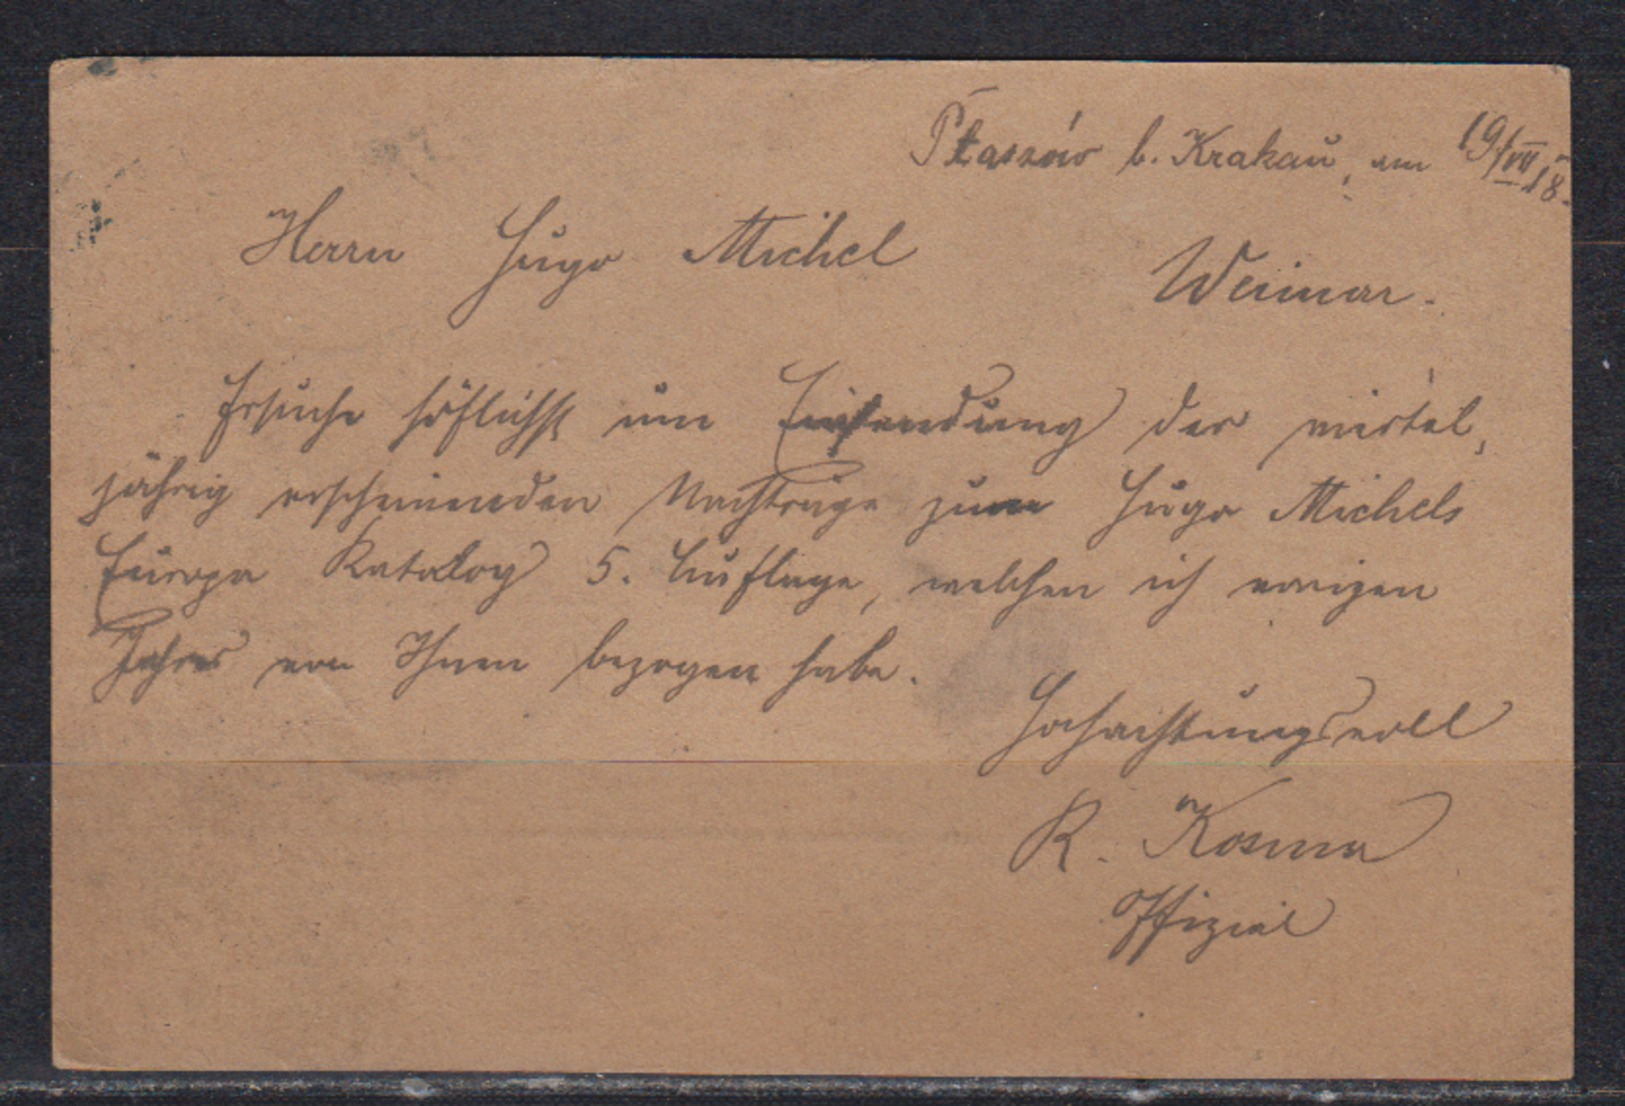 Płaszów b. Krakau, am 19/VII 18.
Herrn Hugo Michel
Weimar.
Ersuche höflichst um Einsendung der viertel,
jährig erscheinenden Nachträge zum Hugo Michels
Europa Katalog 5. Auflage, welchen ich vorigen
Jahres von Ihnen bezogen habe.
Hochachtungsvoll
R. Kosma
Offizial